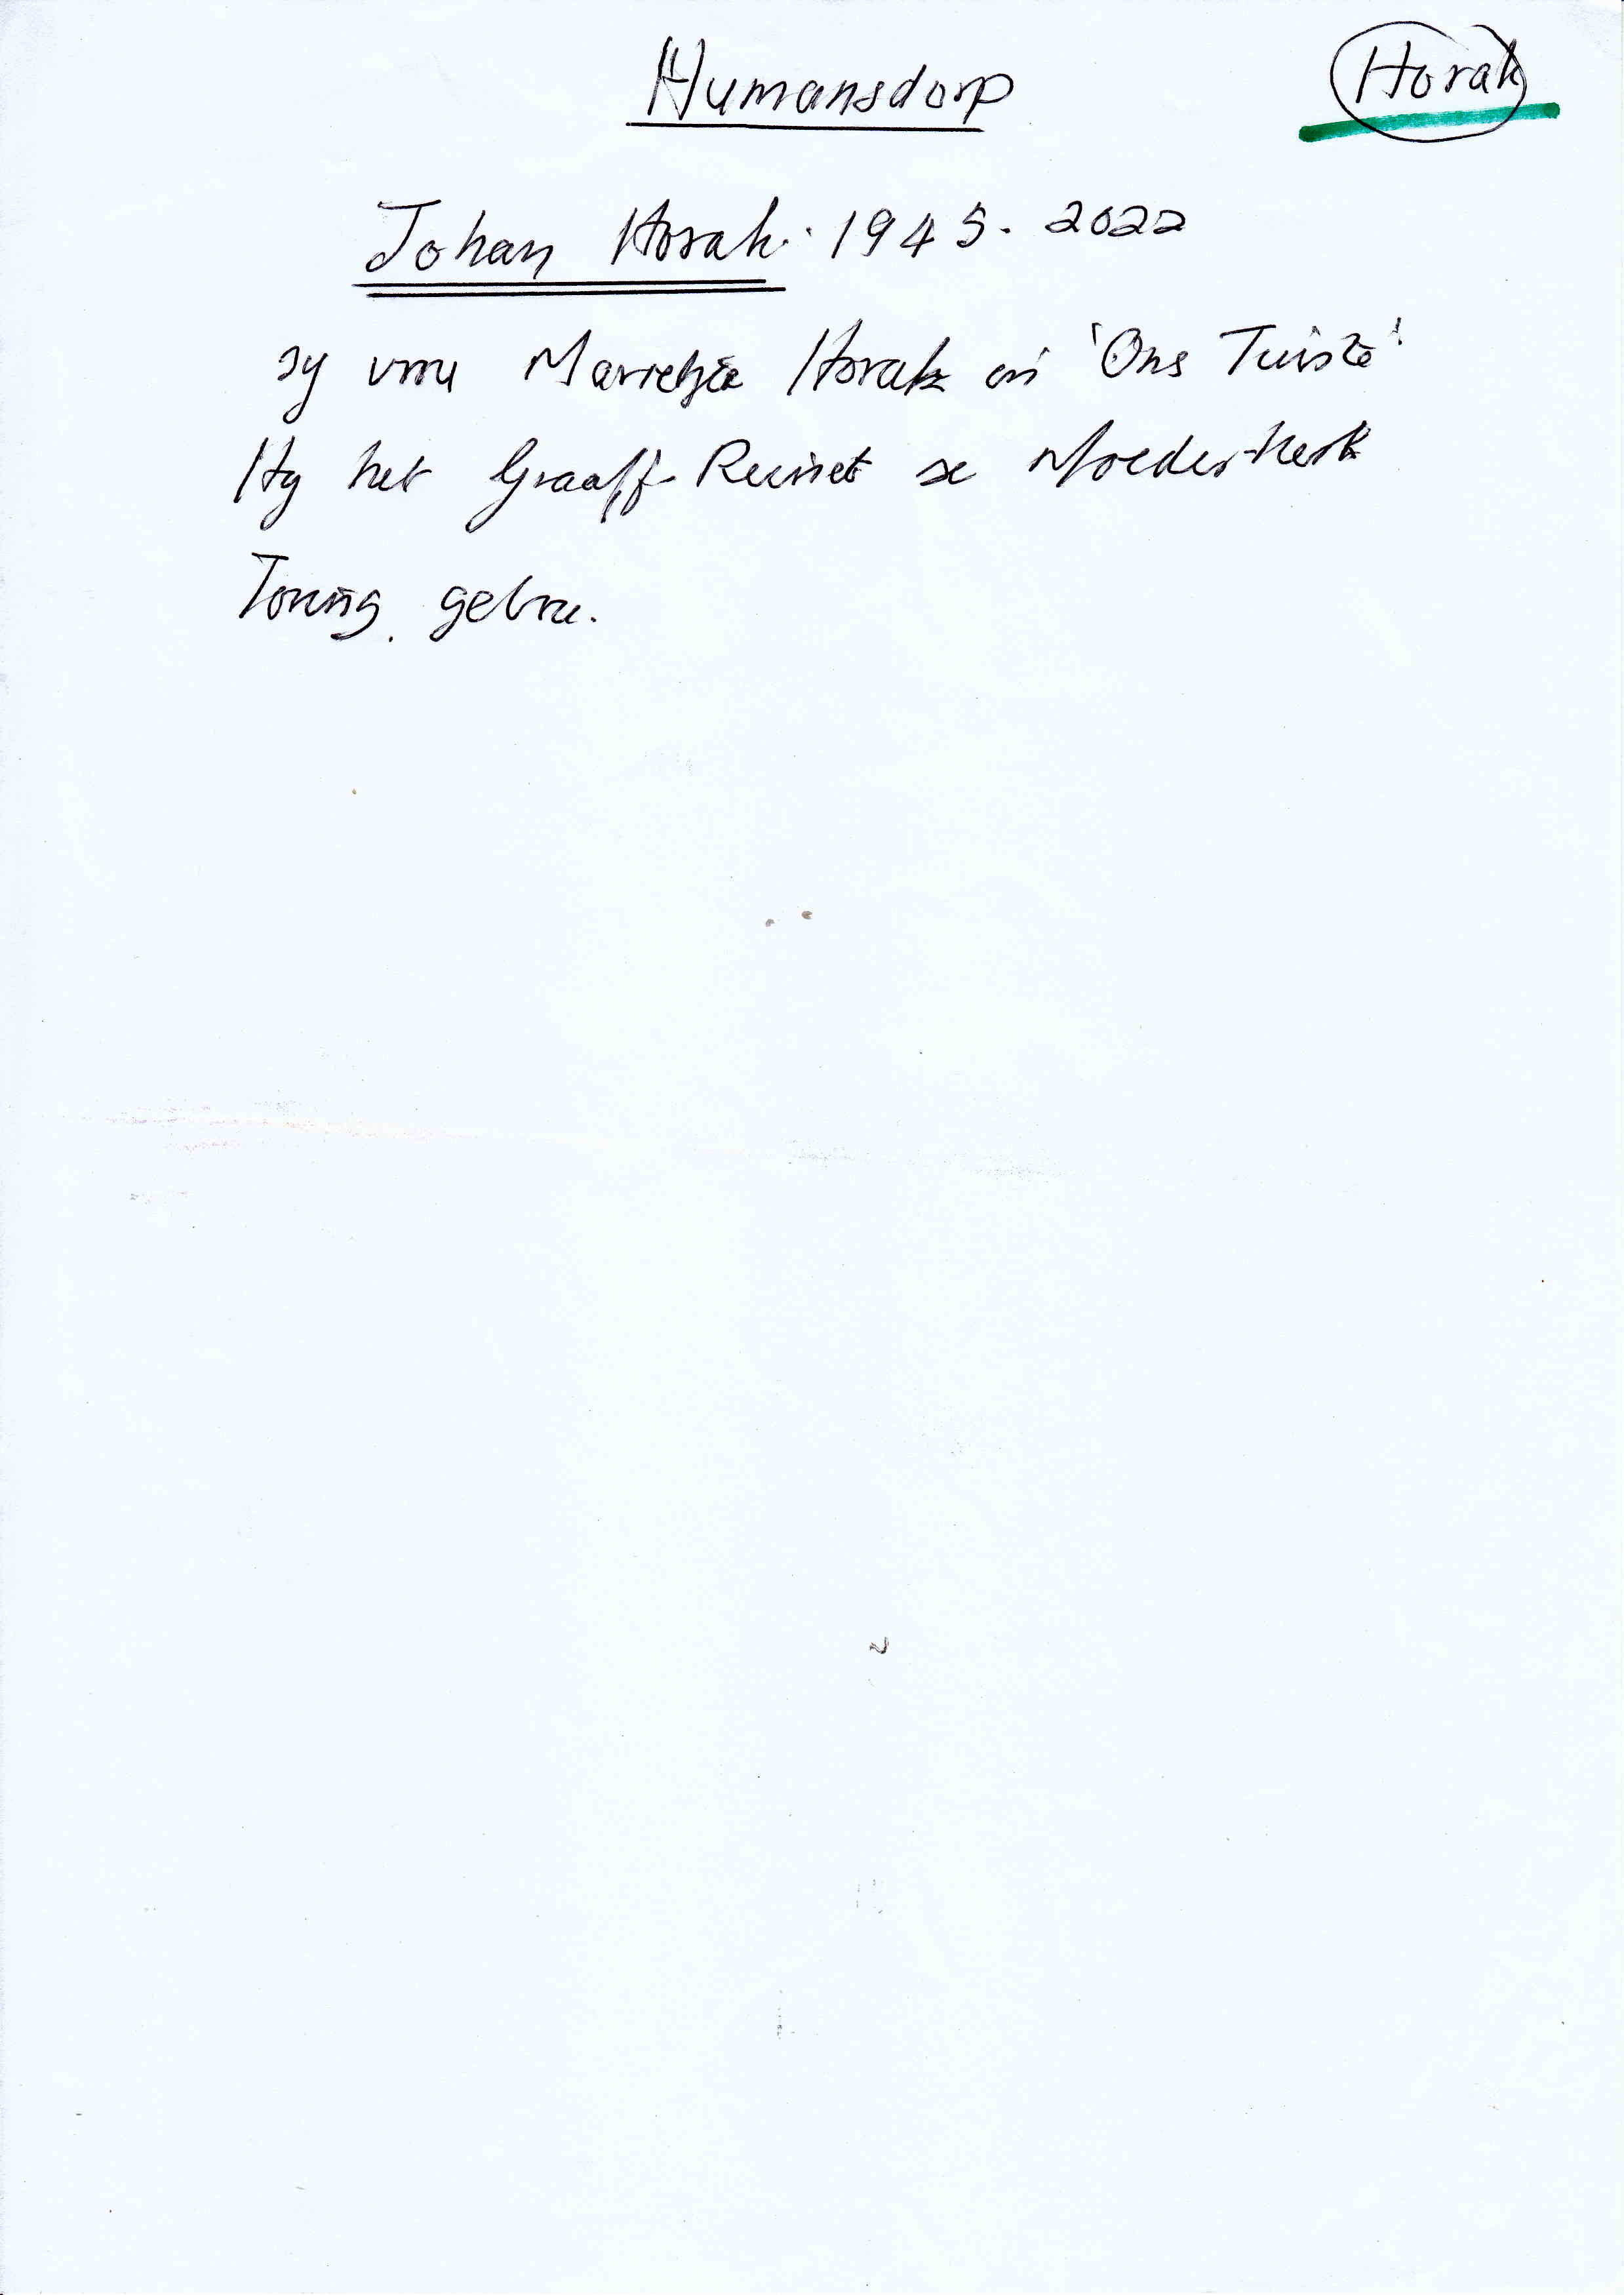 Humansdorp
Horak
Johan Horak. 1945. 2022
sy vrou Marietjie Horak in 'Ons Tuiste'
Hy het Graaff-Reinet se Moeder-kerk
Toring gebou.